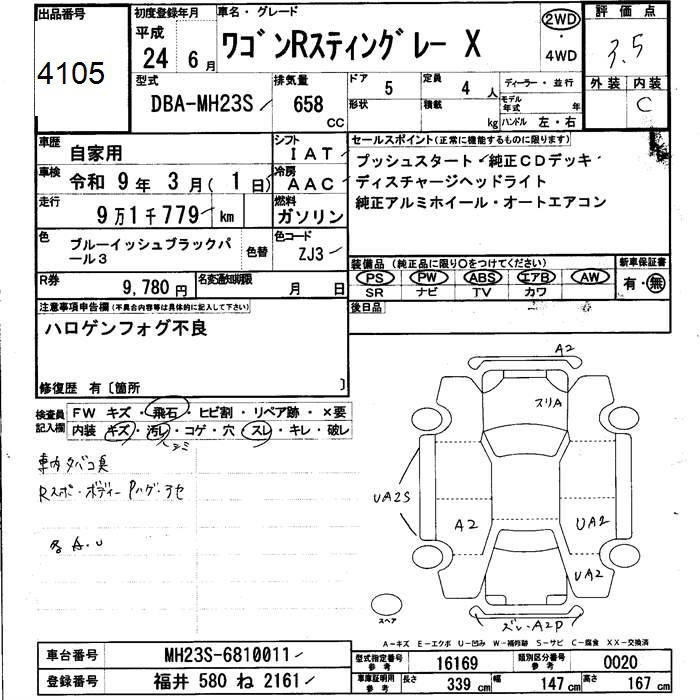 出品番号
4105
初度登録年月
平成
24 6月
車名・グレード
ワゴンRスティングレー X
2WD
・
4WD
評価点
3.5
外装 内装
C
型式
DBA-MH23S
排気量
658
CC
ドア
5
形状
定員
4 人
積載
kg
ディーラー・並行
モデル年式 年
ハンドル 左・右
車歴
自家用
シフト
IAT
車検
令和 9年 3月(1日)
冷房
AAC
走行
9万1千779 km
燃料
ガソリン
色
ブルーイッシュブラックパール3
色替
色コード
ZJ3
R券
9,780円
名変通知期限
月 日
セールスポイント(正常に機能するものに限ります)
プッシュスタート 純正CDデッキ
ディスチャージヘッドライト
純正アルミホイール・オートエアコン
装備品(純正品に限り○をつけてください)
PS PW ABS エアB AW
SR ナビ TV カワ
新車保証書
有・無
後日品
注意事項申告欄(不具合内容等は具体的に記入して下さい)
ハロゲンフォグ不良
修復歴 有〔箇所 〕
検査員記入欄
FW キズ・飛石・ヒビ割・リペア跡・×要
内装 キズ・汚レ・コゲ・穴・スレ・キレ・破レ
シミ
車内タバコ臭
Rスポ・ボディー Pハゲ・アセ
各A・U
A2
スリA
UA2S
A2
UA2
UA2
スペア
ズレ・A2P
A−キズ E−エクボ U−凹み W−補修跡 S−サビ C−腐食 XX−交換済
車台番号
MH23S-6810011
登録番号
福井 580 ね 2161
型式指定番号
参考
16169
類別区分番号
参考
0020
車庫証明用
参考
長さ 339 cm
幅 147 cm
高さ 167 cm